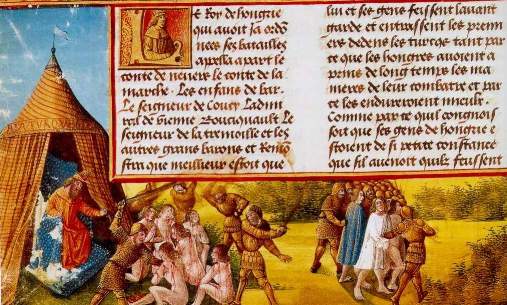 Le Roy de hongrie
qui auoit ja ordon
nees ses batailles
apella a part le
conte de neuers le conte de la
marche. Les enfans de bar.
Le seigneur de Coucy Ladmi
ral de vienne Boucicquault Le
seigneur de la tremoille et les
autres grans barons et Remon
stra que meilheur estoit que
lui et ses gens feissent lauant
garde et entrassent les premi
ers dedens les turcqz tant par
ce que les hongres auoient a
prins de long temps les ma
nieres de leur combatre et par
ce les endureroient mieulx.
Comme par ce quil congnois
soit que ses gens de hongrie e
stoient de si petite constance
que sil auenoit quilz feussent